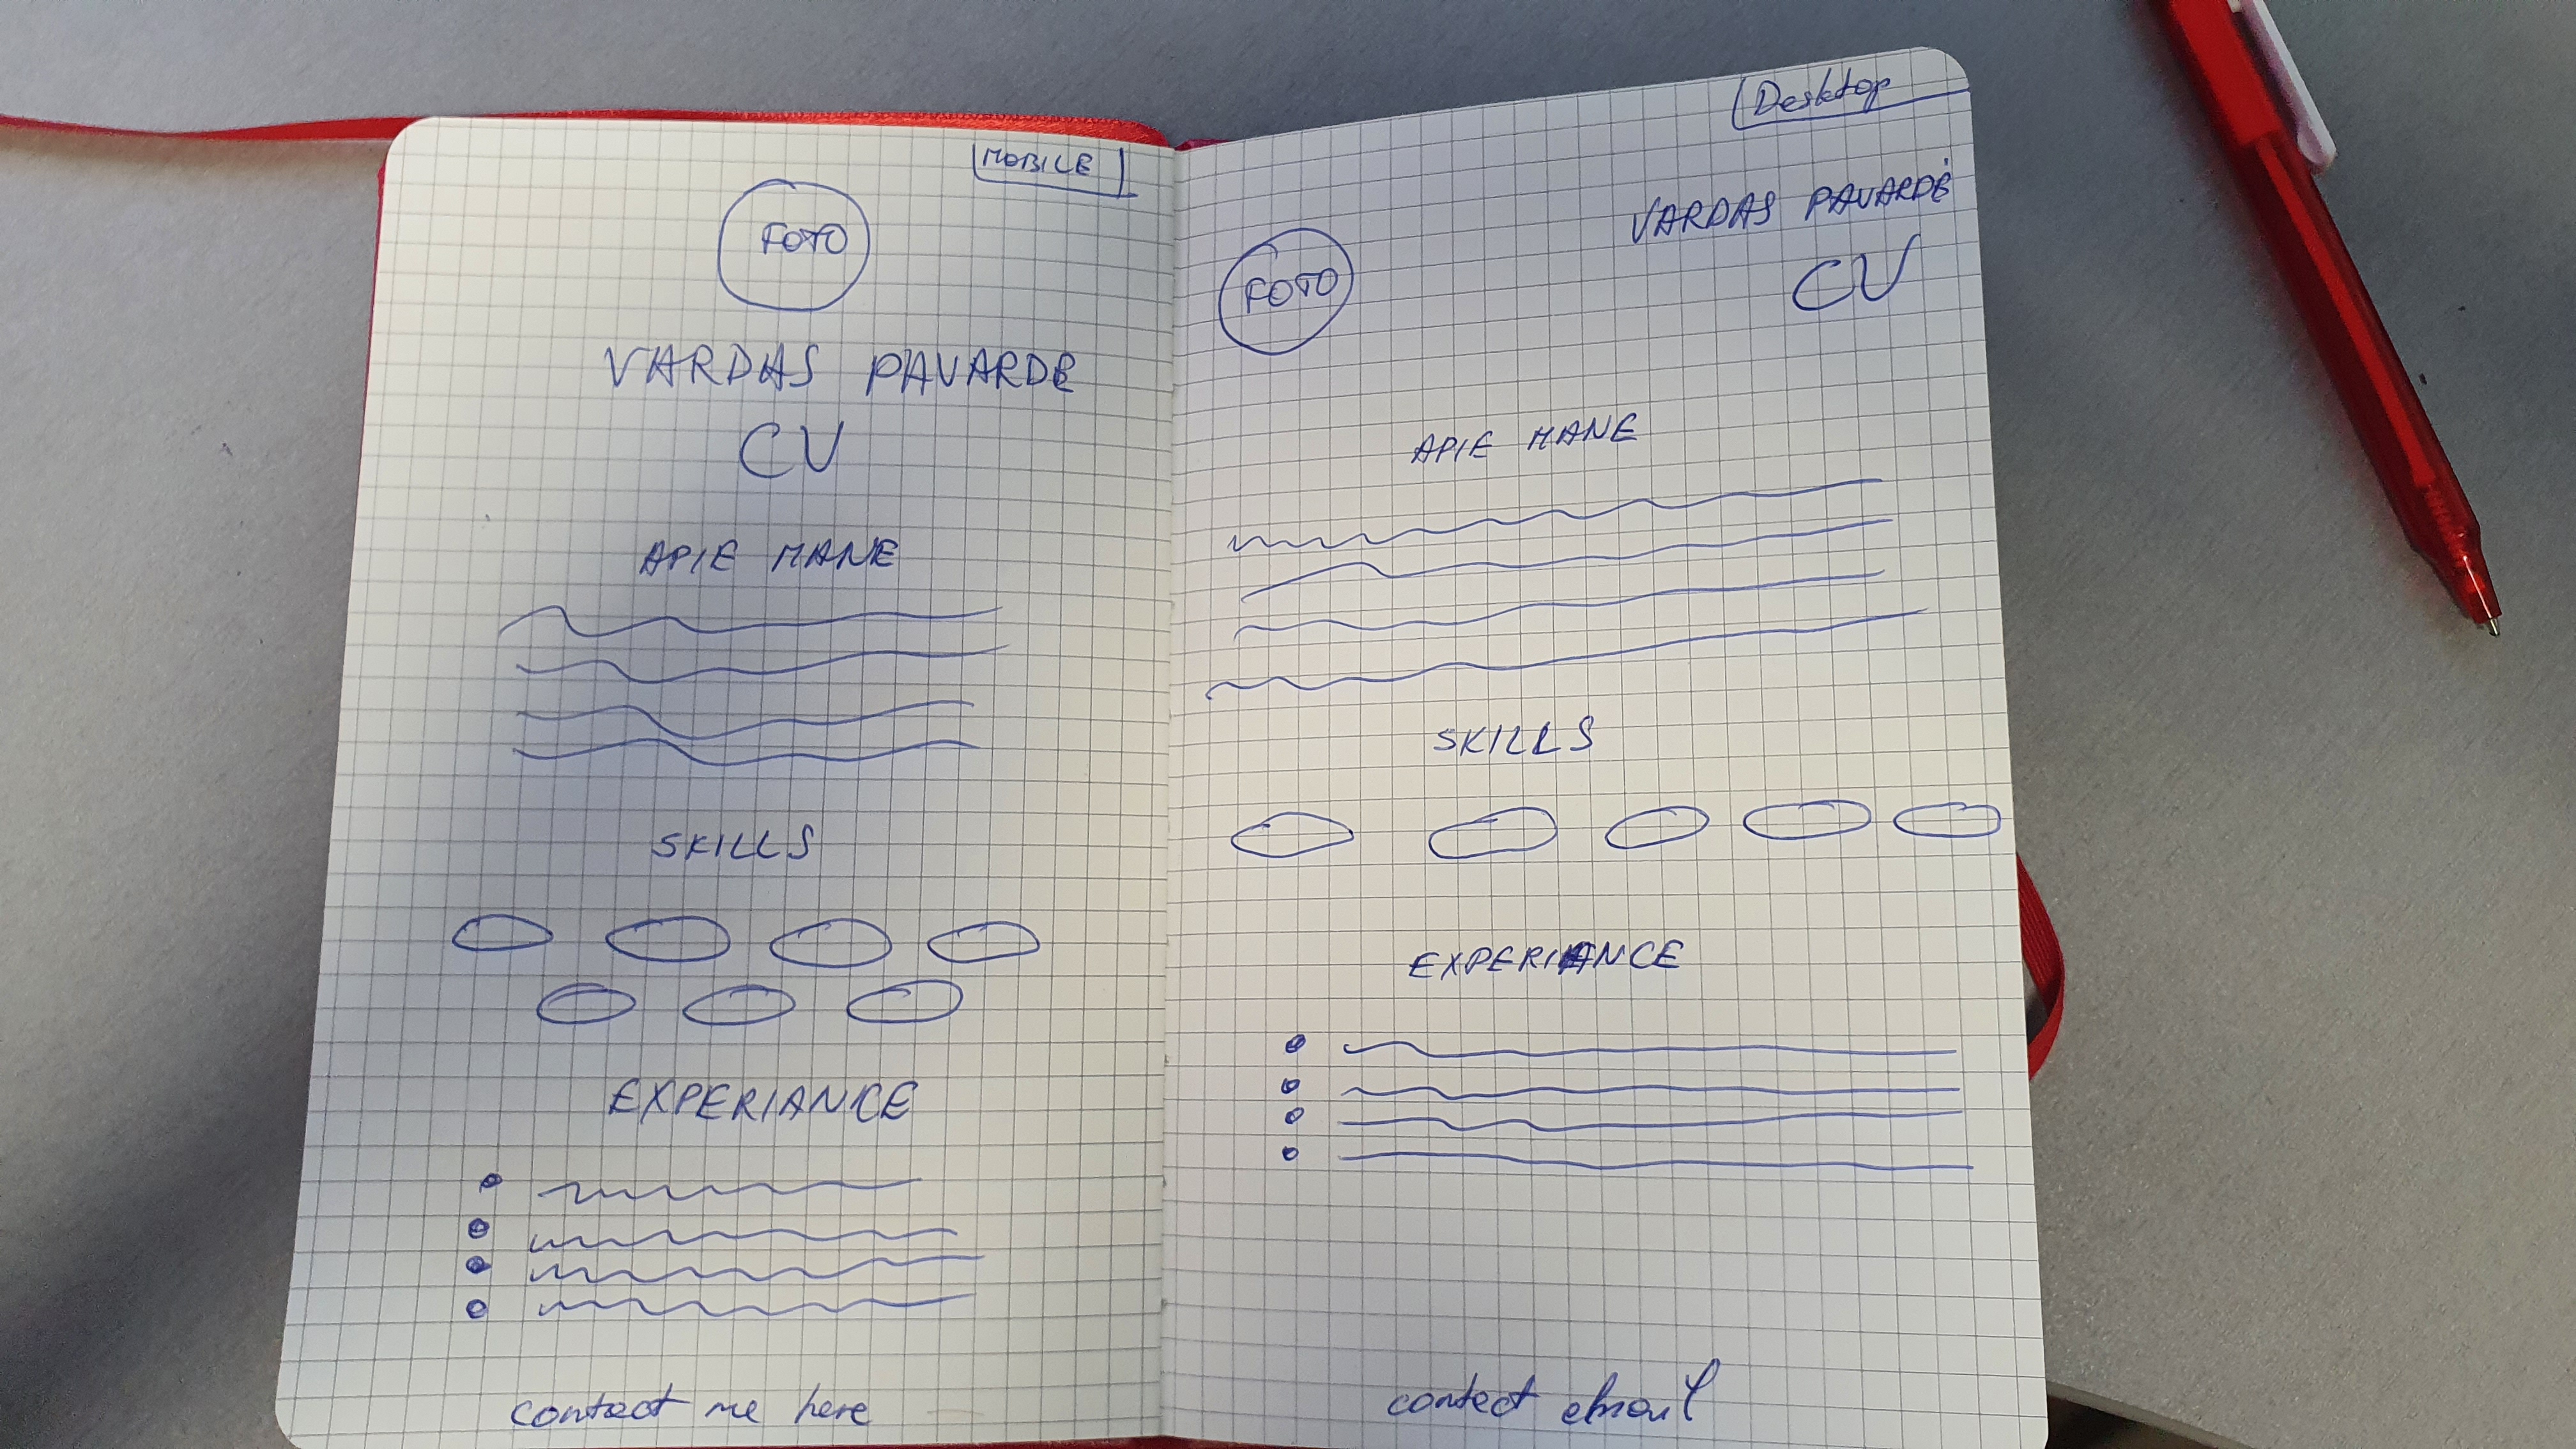 MOBILE
FOTO
VARDAS PAVARDE
CV
APIE MANE
SKILLS
EXPERIANCE
Contact me here
Desktop
VARDAS PAVARDĖ
FOTO
CV
APIE MANE
SKILLS
EXPERIANCE
contact email